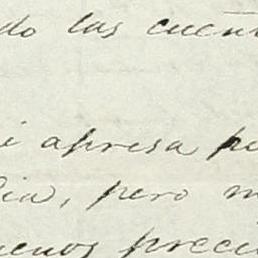 do las cuen
i apresa pe
ia, pero m
enos preci